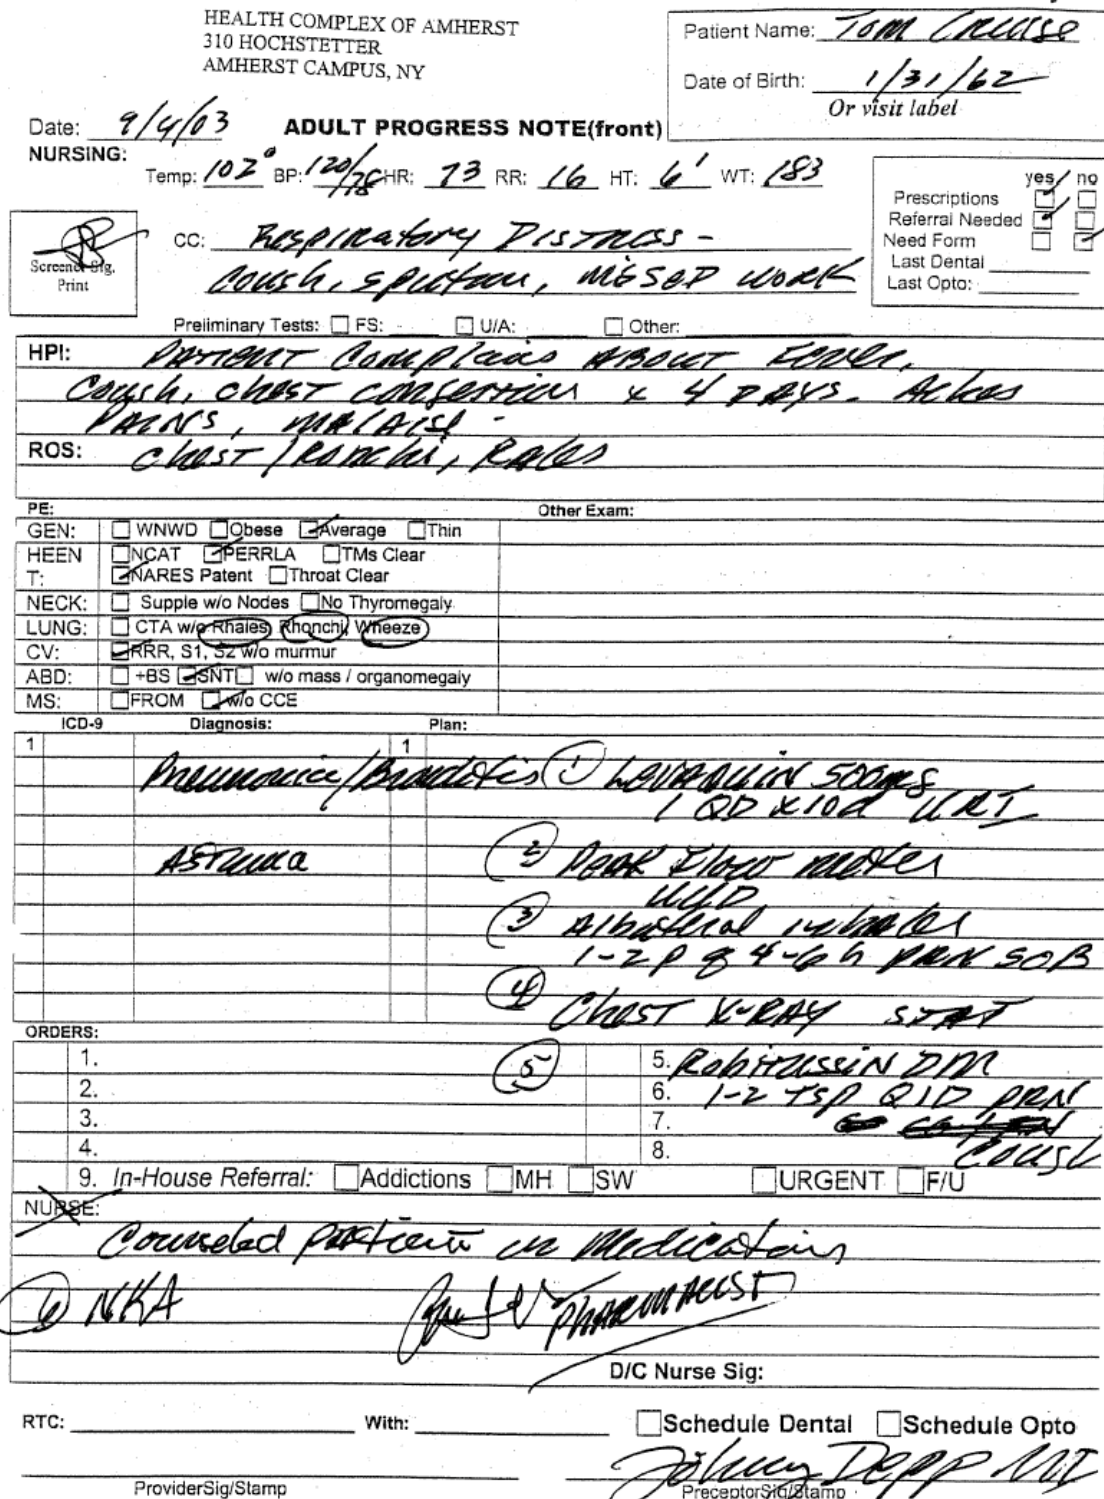 HEALTH COMPLEX OF AMHERST
310 HOCHSTETTER
AMHERST CAMPUS, NY
Patient Name: Tom Cruise
Date of Birth: 1/31/62
Or visit label
Date: 9/4/03 ADULT PROGRESS NOTE(front)
NURSING:
Temp: 102° BP: 120/78 HR: 73 RR: 16 HT: 6' WT: 183
yes no
Prescriptions
Referral Needed
Need Form
Last Dental
Last Opto:
Screener Sig.
Print
CC: Respiratory Distress -
Cough, sputum, missed work
Preliminary Tests: FS: U/A: Other:
HPI: Patient Complains About Fever,
Cough, chest congestion x 4 DAYS. Aches
PAINS, malaise -
ROS: Chest / Ronchi, Rales
PE: Other Exam:
GEN: WNWD Obese Average Thin
HEEN NCAT PERRLA TMs Clear
T: NARES Patent Throat Clear
NECK: Supple w/o Nodes No Thyromegaly
LUNG: CTA w/o Rhales, Rhonchi, Wheeze
CV: RRR, S1, S2 w/o murmur
ABD: +BS SNT w/o mass / organomegaly
MS: FROM w/o CCE
ICD-9 Diagnosis: Plan:
1 1
Pneumonia/ ① LEVAQUIN 500mg
1 QD x 10d URI
Asthma ② Peak Flow meter
UUD
③ Albuteral inhaler
1-2 p q 4-6 h PRN SOB
④ Chest X-RAY STAT
ORDERS:
1. ⑤ 5. Robitussin DM
2. 6. 1-2 tsp QID PRN
3. 7.
4. 8. Cough
9. In-House Referral: Addictions MH SW URGENT F/U
NURSE:
Counseled patient on Medications
⑥ NKA PHARMACIST
D/C Nurse Sig:
RTC: With: Schedule Dental Schedule Opto
Johnny Depp MD
ProviderSig/Stamp PreceptorSig/Stamp